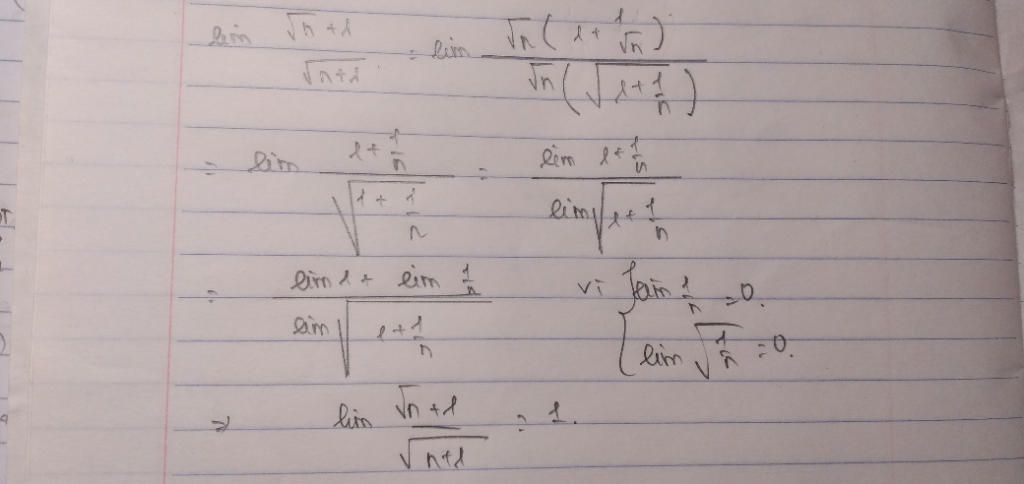 lim (√n + 1)/(√(n+1)) = lim (√n (1 + 1/√n))/(√n (√(1 + 1/n)))
= lim (1 + 1/n)/(√(1 + 1/n)) = (lim 1 + 1/n)/(lim √(1 + 1/n))
= (lim 1 + lim 1/n)/(lim √(1 + 1/n)) vì { lim 1/n = 0.
lim √(1/n) = 0.
⇒ lim (√n + 1)/(√(n+1)) = 1.